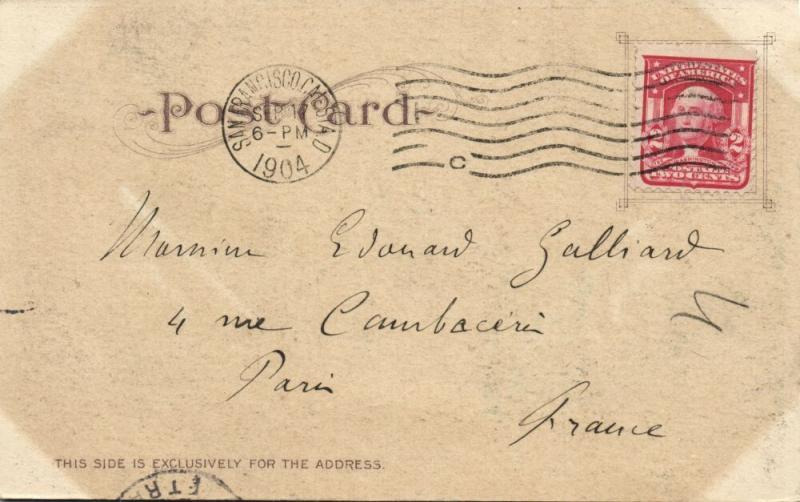 UNITED STATES
OF AMERICA
Post Card
SAN FRANCISCO, CAL. STA. D
6-PM
1904
C
2 2
TWO CENTS
Edouard Galliard
4 rue Cambacérès
Paris
France
THIS SIDE IS EXCLUSIVELY FOR THE ADDRESS.